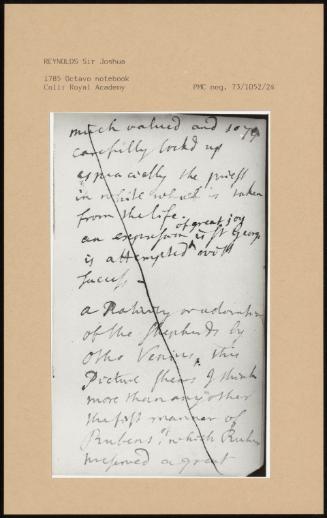 REYNOLDS Sir Joshua
1785 Octavo notebook
Coll: Royal Academy
PMC neg. 73/1052/24
much valued and so
carefully lockd up
especially the priest
in white which is taken
from the life.
of great joy
an expression in St George
is attempted with
success
a Nativity or adoration
of the Shepherds by
Otho Venius, this
Picture shews I think
more than any other
the first manner of
Rubens, which Rubens
a great